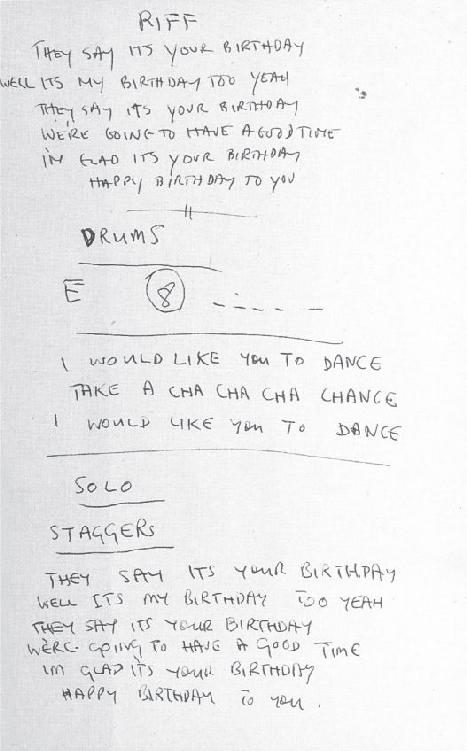 RIFF
THEY SAY ITS YOUR BIRTHDAY
WELL ITS MY BIRTHDAY TOO YEAH
THEY SAY ITS YOUR BIRTHDAY
WE'RE GOING TO HAVE A GOOD TIME
IM GLAD ITS YOUR BIRTHDAY
HAPPY BIRTHDAY TO YOU
DRUMS
E 8
I WOULD LIKE YOU TO DANCE
TAKE A CHA CHA CHA CHANCE
I WOULD LIKE YOU TO DANCE
SOLO
STAGGERS
THEY SAY ITS YOUR BIRTHDAY
WELL ITS MY BIRTHDAY TOO YEAH
THEY SAY ITS YOUR BIRTHDAY
WE'RE GOING TO HAVE A GOOD TIME
IM GLAD IT'S YOUR BIRTHDAY
HAPPY BIRTHDAY TO YOU.